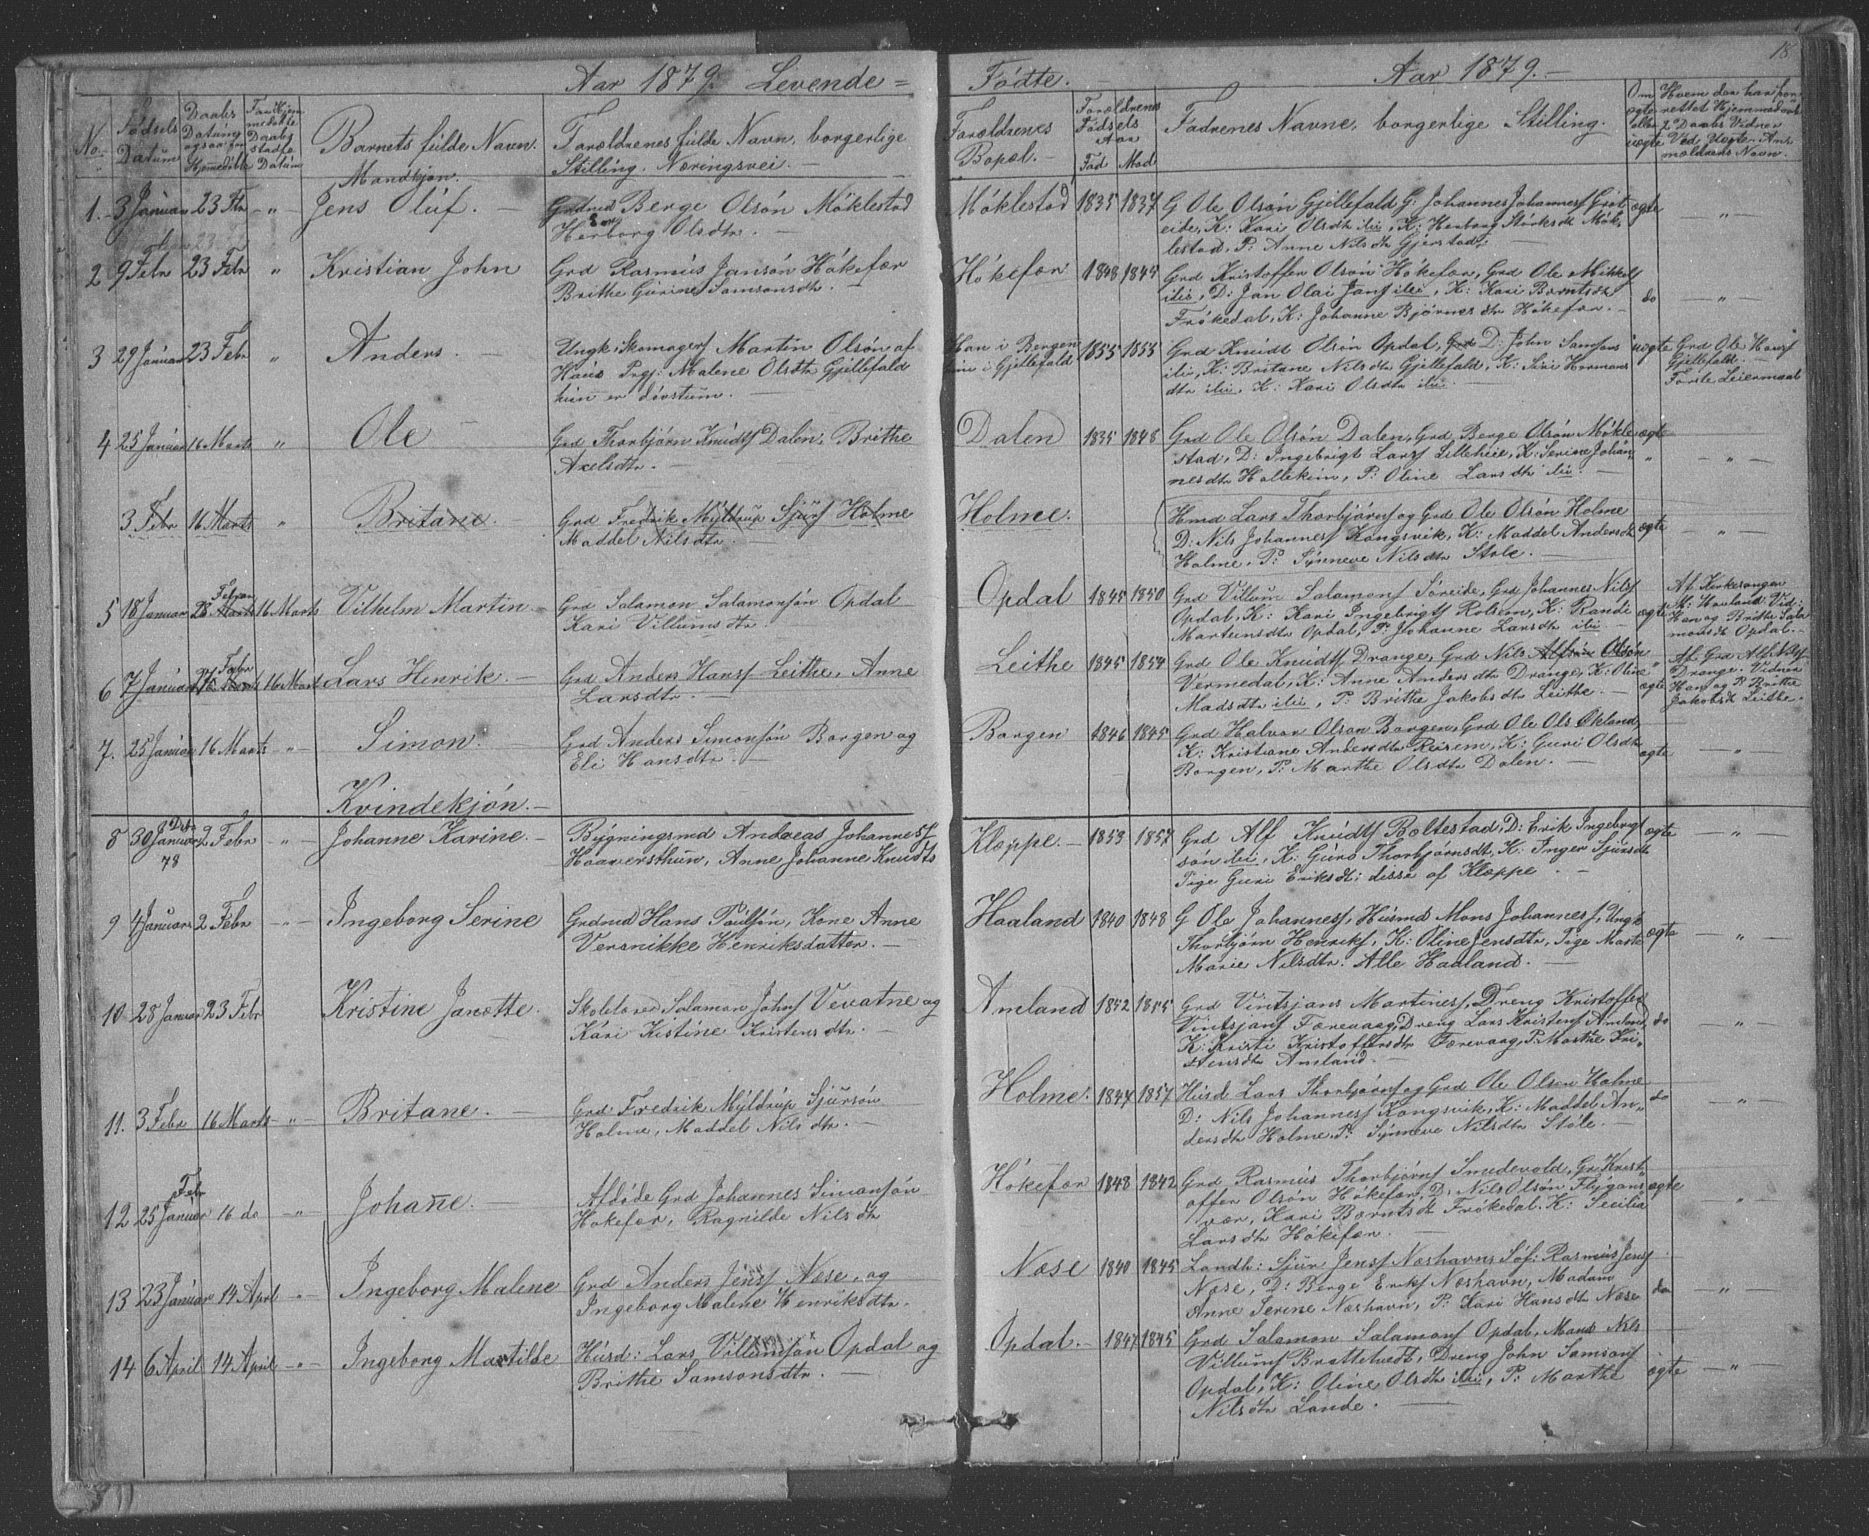 Aar 1879. Levende = Fødte. Aar 1879.- 18
No. Fødsels Datum
Daabs Datum ogsaa for Hjemedøbte
For Hjemmedøbte Daabs stadfæ Datum
Barnets fulde Navn.
Forældrenes fulde Navn, borgerlige
Stilling. Næringsvei.
Forældrenes
Bopæl.
Forældrenes
Fødsels
Aar
Fad Mod
Fadrenes Navne, borgerlige Stilling.
Om ægte eller uægte
Mandkjøn.
1. 3 Januar 23 Febr " Jens Oluf.
Grdmd Berge Olsøn Møklestad
Herborg Olsdtr.
Møklestad 1835 1837
G Ole Olsøn Gjellefald G. Johannes Johannesf Grot
eide, K: Kari Olsdtr ibi, K: Herborg Størksdt Møk
lestad, P: Anne Nilsdtr Gjerstad,
ægte "
2 9 Febr 23 Febr " Kristian John
Grd Rasmus Jansøn Høkefær
Brithe Gurine Samsonsdtr.
Høkefær 1848 1844
Grd Kristoffer Olsøn Høkefær, Grd Ole Mikkelf
ibi, D: Jan Olai Janf ibi, K: Kari Bærntsdtr
Frøkedal, K: Johanne Bjørnesdtr Høkefær.
do "
3 29 Januar 23 Febr " Anders.
Ungk: Skomagerf Martin Olsøn af
Haus Pige: Malene Olsdtr Gjellefald
hun er døvstum.
Han i Bergen
hun i Gjellefald 1855 1855
Grd Knudt Olsøn Opdal, Grd D: John Samsons
ibi, K: Britane Nilsdtr Gjellefald, K: Siri Hermans
dtr ibi, K: Kari Olsdtr ibi.
uægte
Grd Ole Hansf
Gjellefald.
Første Leiermaal
4 25 Januar 16 Marts " Ole
Grd Thorbjørn Knudtf Dalen, Brithe
Axelsdtr.
Dalen 1835 1848
Grd Ole Olsøn Dalen, Grd Berge Olsøn Møkle
stad, D: Ingebrigt Larsf Lilleheie, K: Serine Johan
nesdtr Hollekim, P: Oline Larsdtr ibi.
ægte "
3 Febr 16 Marts " Britane.
Grd Fredrik Myldrup Sjurf Holme
Maddel Nilsdtr.
Holme.
Hmd Lars Thorbjørnf og Grd Ole Olsøn Holme
D: Nils Johannesf Kongsvik, K: Maddel Andersdtr
Holme, P: Synneve Nilsdtr Støle.
ægte "
5 18 Januar 28 Marts Februar 16 Marts Vilhelm Martin
Grd Salamon Salamonsøn Opdal
Kari Villumsdtr.
Opdal 1845 1850
Grd Villum Salamonf Søreide, Grd Johannes Nilsf
Opdal, K: Kari Ingebrigtf Rolsem, K: Randi
Martinsdtr Opdal, P: Johanne Larsdtr ibi.
ægte
Af Kirkesanger
Haaland Vid:
Han og Brithe Sala
monsdt Opdal.
6 7 Januar Marts Febr 16 Marts Lars Henrik.
Grd Anders Hansf Leithe, Anne
Larsdtr.
Leithe 1845 1854
Grd Ole Knudtf Drange, Grd Nils Olsøn
Vermedal, K: Anne Andersdtr Drange, K: Oline
Madsdtr ibi, P: Brithe Jakobsdtr Leithe.
ægte
Af Grd
Drange. Vidner
Han og P: Brithe
Jakobsdt Leithe.
7. 25 Januar 16 Marts " Simon.
Grd Anders Simonsøn Borgen og
Eli Hansdtr.
Borgen 1846 1845
Grd Halvor Olsøn Borgen, Grd Ole Ols Økland,
K: Kristane Andersdtr Reirem, K: Guri Olsdtr
Borgen, P: Marthe Olsdtr Dalen.
ægte "
Kvindekjøn.
8 30 Januar Dcbr 78 2 Febr " Johanne Karine.
Bygningsmd Andreas Johannesf
Haaversthun, Anne Johanne Knudts
Klæppe. 1853 1857
Grd Alf Knudtf Boltestad, D: Erik Ingebrigt
søn ibi, K: Guro Thorbjørnsdt, K: Inger Sjursdt
Pige Guri Eriksdt: disse af Klæppe.
ægte "
9 4 Januar 2 Febr " Ingeborg Serine
Grdmd Hans Poulsøn, Kone Anne
Veronikke Henriksdatter.
Haaland 1840 1848
G Ole Johannesf, Husmd Mons Johannesf, Ungk
Thorbjørn Henrikf, K: Oline Jensdtr, Pige Marte
Marie Nilsdtr. Alle Haaland.
ægte "
10 28 Januar 23 Febr Kristine Janette.
Skolelærer Salamon Johnf Vevatne og
Kari Kistine Kristensdtr.
Amland 1852 1855
Grd Vintsjans Martinesf, Dreng Kristoffer
Vintsjansf Færevaag, Dreng Lars Kristenf Amland,
K: Kristi Kristoffersdtr Færevaag, P: Marthe Kri
stensdtr Amland.
do "
11. 3 Febr 16 Marts " Britane.
Grd: Fredrik Myldrup Sjursøn
Holme, Maddel Nilsdtr.
Holme. 1847 1857
Husd Lars Thorbjørnf og Grd Ole Olsen Holme
D: Nils Johannesf Kongsvik, K: Maddel An
dersdtr Holme, P: Synneve Nilsdtr Støle.
do "
12 25 Januar Febr 16 do " Johanne.
Afdøde Grd Johannes Simonsøn
Høkefær, Ragnilde Nilsdtr
Høkefær 1848 1842
Grd Rasmus Thorbjørnf Smedevold, Gr Krist
offer Olsøn Høkefær, D: Nils Olsøn Flygans
vær, Kari Bærntsdt Frøkedal, K: Secilia
Larsdtr Høkefær.
ægte "
13 23 Januar 14 April " Ingeborg Malene
Grd Anders Jensf Næse, og
Ingeborg Malene Henriksdtr.
Næse 1840 1845
Landh: Sjur Jensf Næshavn, Søf: Rasmus Jensf
Næse, D: Berge Erikf Næshavn, Madam
Anne Serine Næshavn, P: Kari Hansdtr Næse
do "
14 6 April 14 April " Ingeborg Martilde
Husd: Lars Villumsøn Opdal og
Brithe Samsonsdtr.
Opdal. 1847 1845
Grd Salamon Salamonf Opdal, Mand Nils
Villumf Brattetvedt, Dreng John Samsonf
Opdal, K: Oline Olsdtr ibi, P: Marthe
Nilsdtr Lande.
ægte "